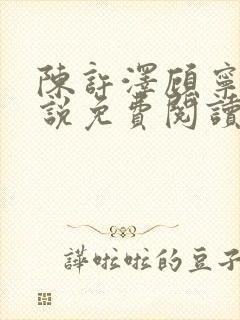 陳許澤顧寧
說免費閱讀
譁啦啦的豆子